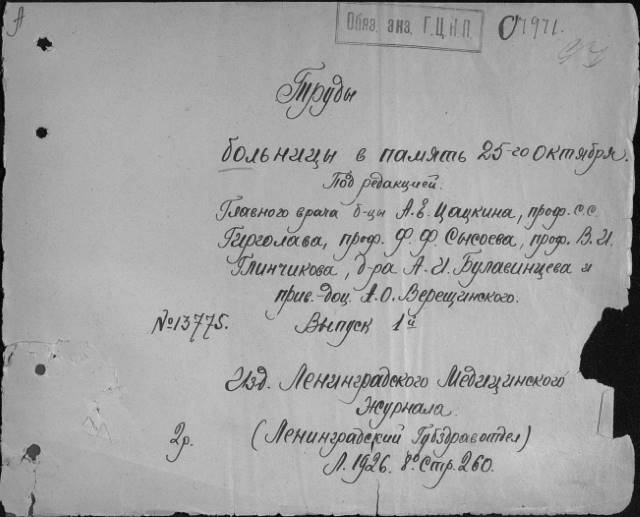 А
Обяз. экз. Г.Ц.К.П. 1971.
Труды
больницы в память 25-го Октября.
Под редакцией.
Главного врача б-цы А.Б. Цацкина, проф. С.С.
Гирголава, проф. Ф.Ф. Сысоева, проф. В.И.
Глинчикова, д-ра А.И. Булавинцева и
прив.-доц. А.О. Верещинского.
№13775. Выпуск 1й
Изд. Ленинградского Медицинского
Журнала.
2р. (Ленинградский Губздравотдел)
Л. 1926. 8° Стр. 260.